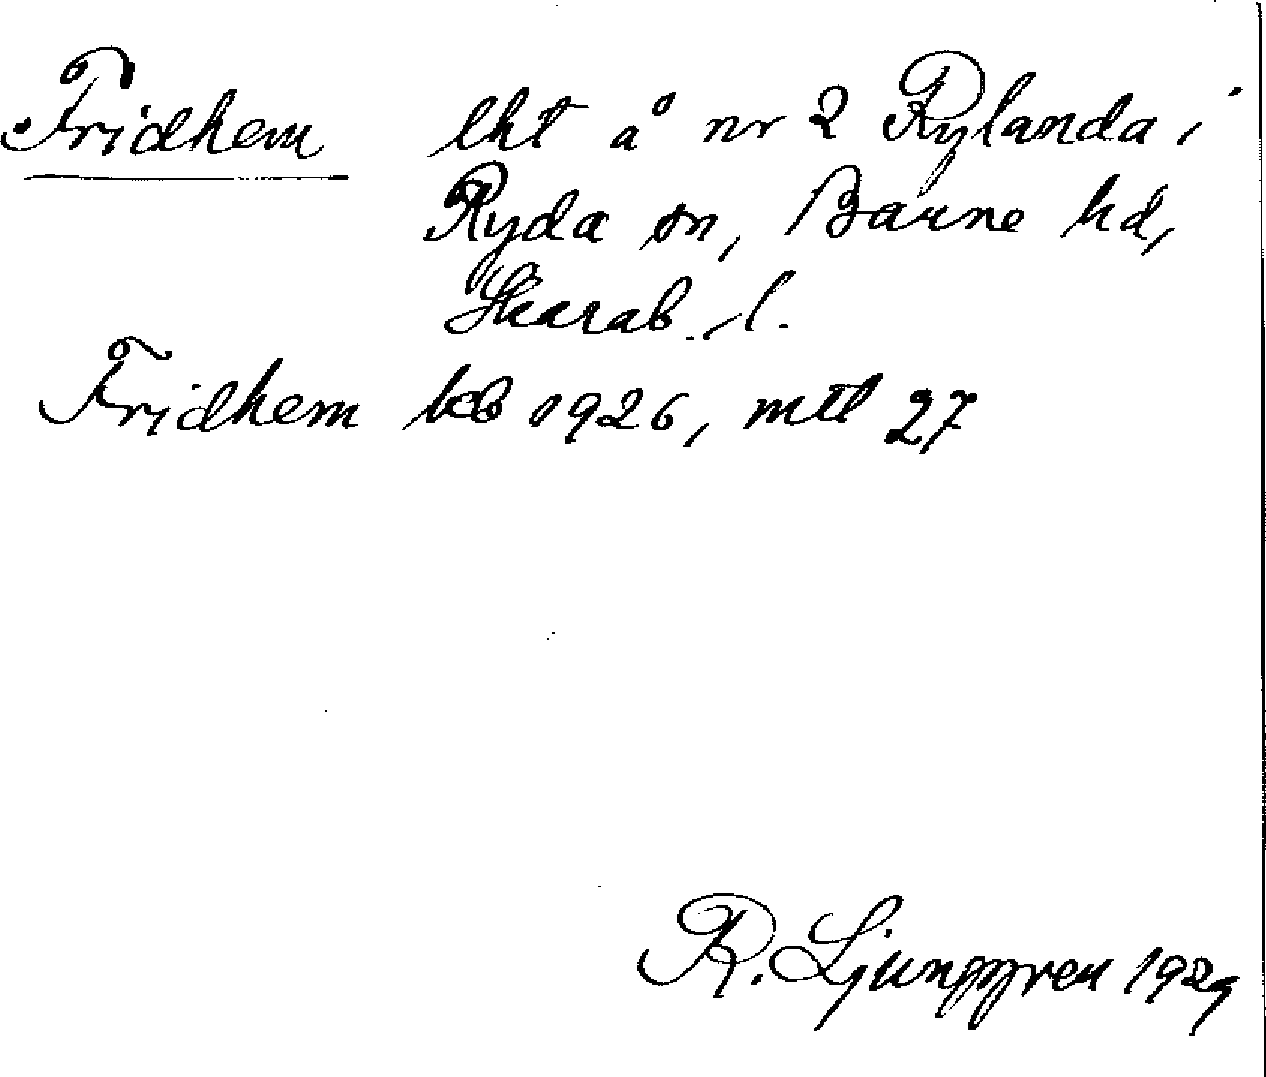 Fridhem lht å nr 2 Rylanda i
Ryda sn, Barne hd,
Skarab. l.
Fridhem kb 1926, mtl 27
R. Ljunggren 1929